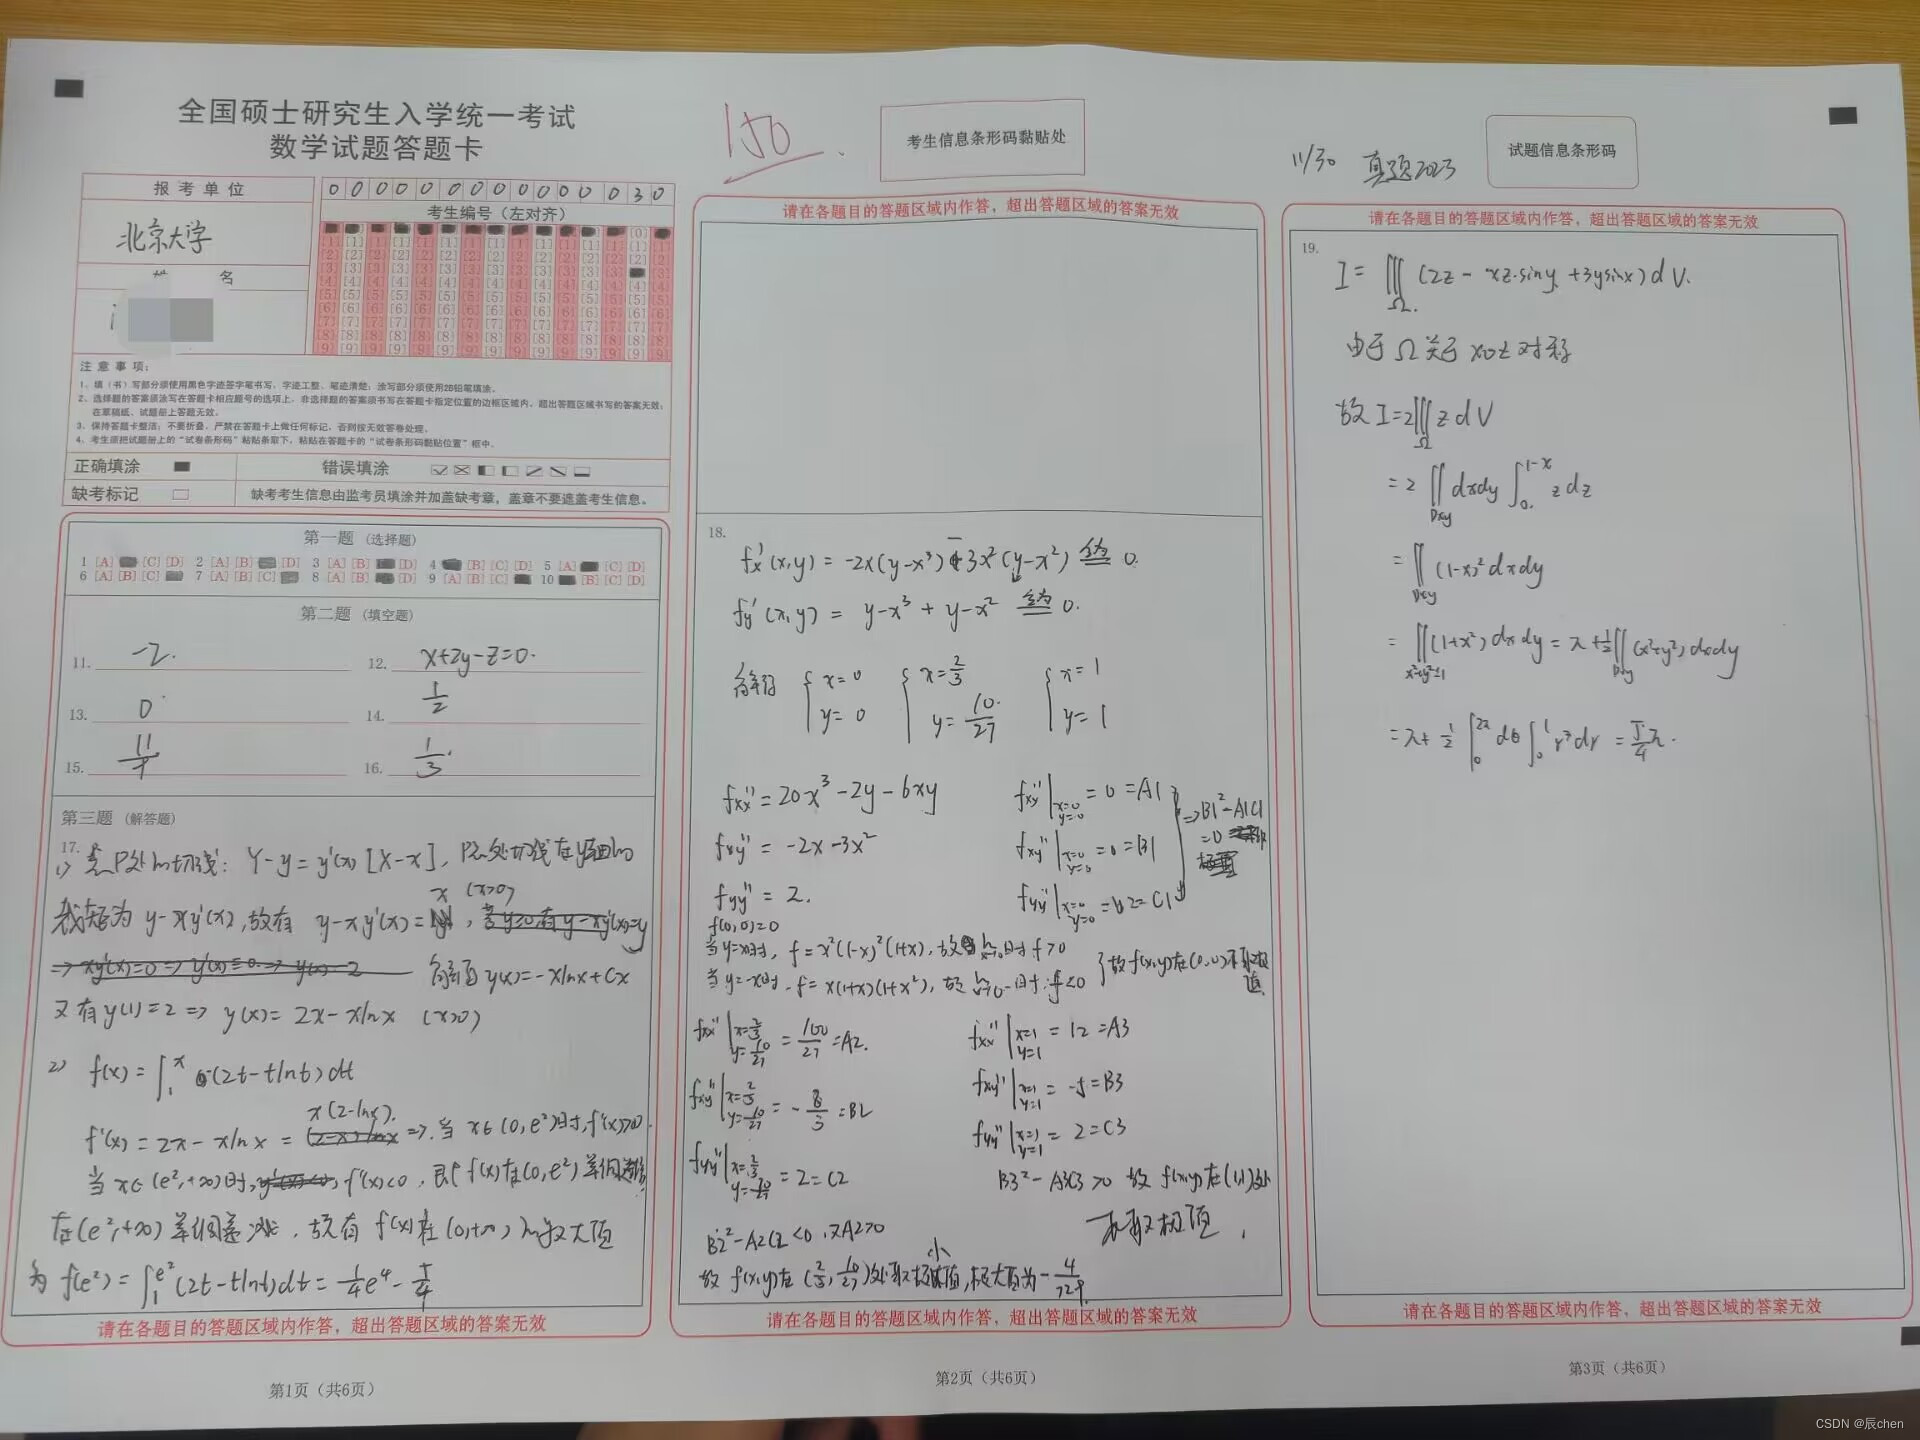 全国硕士研究生入学统一考试
数学试题答题卡
报考单位
北京大学
姓 名
0 0 0 0 0 0 0 0 0 0 0 0 0 3 0
考生编号（左对齐）
注意事项：
1、填（书）写部分须使用黑色字迹签字笔书写，字迹工整、笔迹清楚；涂写部分须使用2B铅笔填涂。
2、选择题的答案须涂写在答题卡相应题号的选项上，非选择题的答案须书写在答题卡指定位置的边框区域内，超出答题区域书写的答案无效；
在草稿纸、试题册上答题无效。
3、保持答题卡整洁；不要折叠，严禁在答题卡上做任何标记，否则按无效答卷处理。
4、考生须把试题册上的“试卷条形码”粘贴条取下，粘贴在答题卡的“试卷条形码黏贴位置”框中。
正确填涂 错误填涂
缺考标记 缺考考生信息由监考员填涂并加盖缺考章，盖章不要遮盖考生信息。
第一题（选择题）
1 [A] [C] [D] 2 [A] [B] [D] 3 [A] [B] [D] 4 [B] [C] [D] 5 [A] [C] [D]
6 [A] [B] [C] 7 [A] [B] [C] 8 [A] [B] [D] 9 [A] [B] [C] 10 [B] [C] [D]
第二题（填空题）
11. -2. 12. x+2y-z=0.
13. 0 14. 1/2
15. 11/7 16. 1/3
第三题（解答题）
17.
1) 点P处的切线：Y-y=y'(x)[X-x]，P点处切线在y轴的
截距为 y-xy'(x), 故有 y-xy'(x)=x (x>0)
解得 y(x)=-xlnx+Cx
又有y(1)=2 ⇒ y(x)=2x-xlnx (x>0)
2) f(x)=∫₁ˣ(2t-tlnt)dt
f'(x)=2x-xlnx=x(2-lnx). ⇒ 当x∈(0,e²)时, f'(x)>0.
当x∈(e²,+∞)时, f'(x)<0, 即f(x)在(0,e²)单调递增
在(e²,+∞)单调递减, 故有 f(x)在(0,+∞)的最大值
为 f(e²)=∫₁^{e²}(2t-tlnt)dt=1/4 e⁴-5/4
请在各题目的答题区域内作答，超出答题区域的答案无效
第1页（共6页）
150
考生信息条形码黏贴处
请在各题目的答题区域内作答，超出答题区域的答案无效
18.
fx'(x,y)=-2x(y-x³)-3x²(y-x²) 令为 0.
fy'(x,y)=y-x³+y-x² 令为 0.
解得 {x=0 y=0 {x=2/3 y=10/27 {x=1 y=1
fxx''=20x³-2y-6xy fxx''|x=0 y=0 =0=A1
fxy''=-2x-3x² fxy''|x=0 y=0 =0=B1
fyy''=2. fyy''|x=0 y=0 =2=C1
⇒B1²-A1C1
=0
f(0,0)=0
当y=x时, f=x²(1-x)²(1+x), 故 时 f>0
当y=-x时, 时 f<0
故f(x,y)在(0,0)不取极值
fxx''|x=2/3 y=10/27 =100/27=A2. fxx''|x=1 y=1 =12=A3
fxy''|x=2/3 y=10/27 =-8/3=B2 fxy''|x=1 y=1 =-5=B3
fyy''|x=2/3 y=10/27 =2=C2 fyy''|x=1 y=1 =2=C3
B3²-A3C3>0 故 f(x,y)在(1,1)处
不取极值.
B2²-A2C2<0, 又A2>0
故 f(x,y)在(2/3,10/27)处取极小值, 极大值为-4/729.
请在各题目的答题区域内作答，超出答题区域的答案无效
第2页（共6页）
11/30 真题2023
试题信息条形码
请在各题目的答题区域内作答，超出答题区域的答案无效
19.
I=∭Ω(2z-xz·siny+3ysinx)dV.
由于Ω关于xoz对称
故I=2∭Ω zdV
=2∬Dxy dxdy∫₀^{1-x} zdz
=∬Dxy(1-x)²dxdy
=∬x²+y²≤1(1+x²)dxdy=π+1/2∬Dxy(x²+y²)dxdy
=π+1/2∫₀^{2π}dθ∫₀¹r³dr=5/4π.
请在各题目的答题区域内作答，超出答题区域的答案无效
第3页（共6页）
CSDN @辰chen